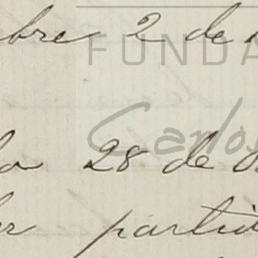 bre 2 de
FUNDA
Carlos
28 de
er partid